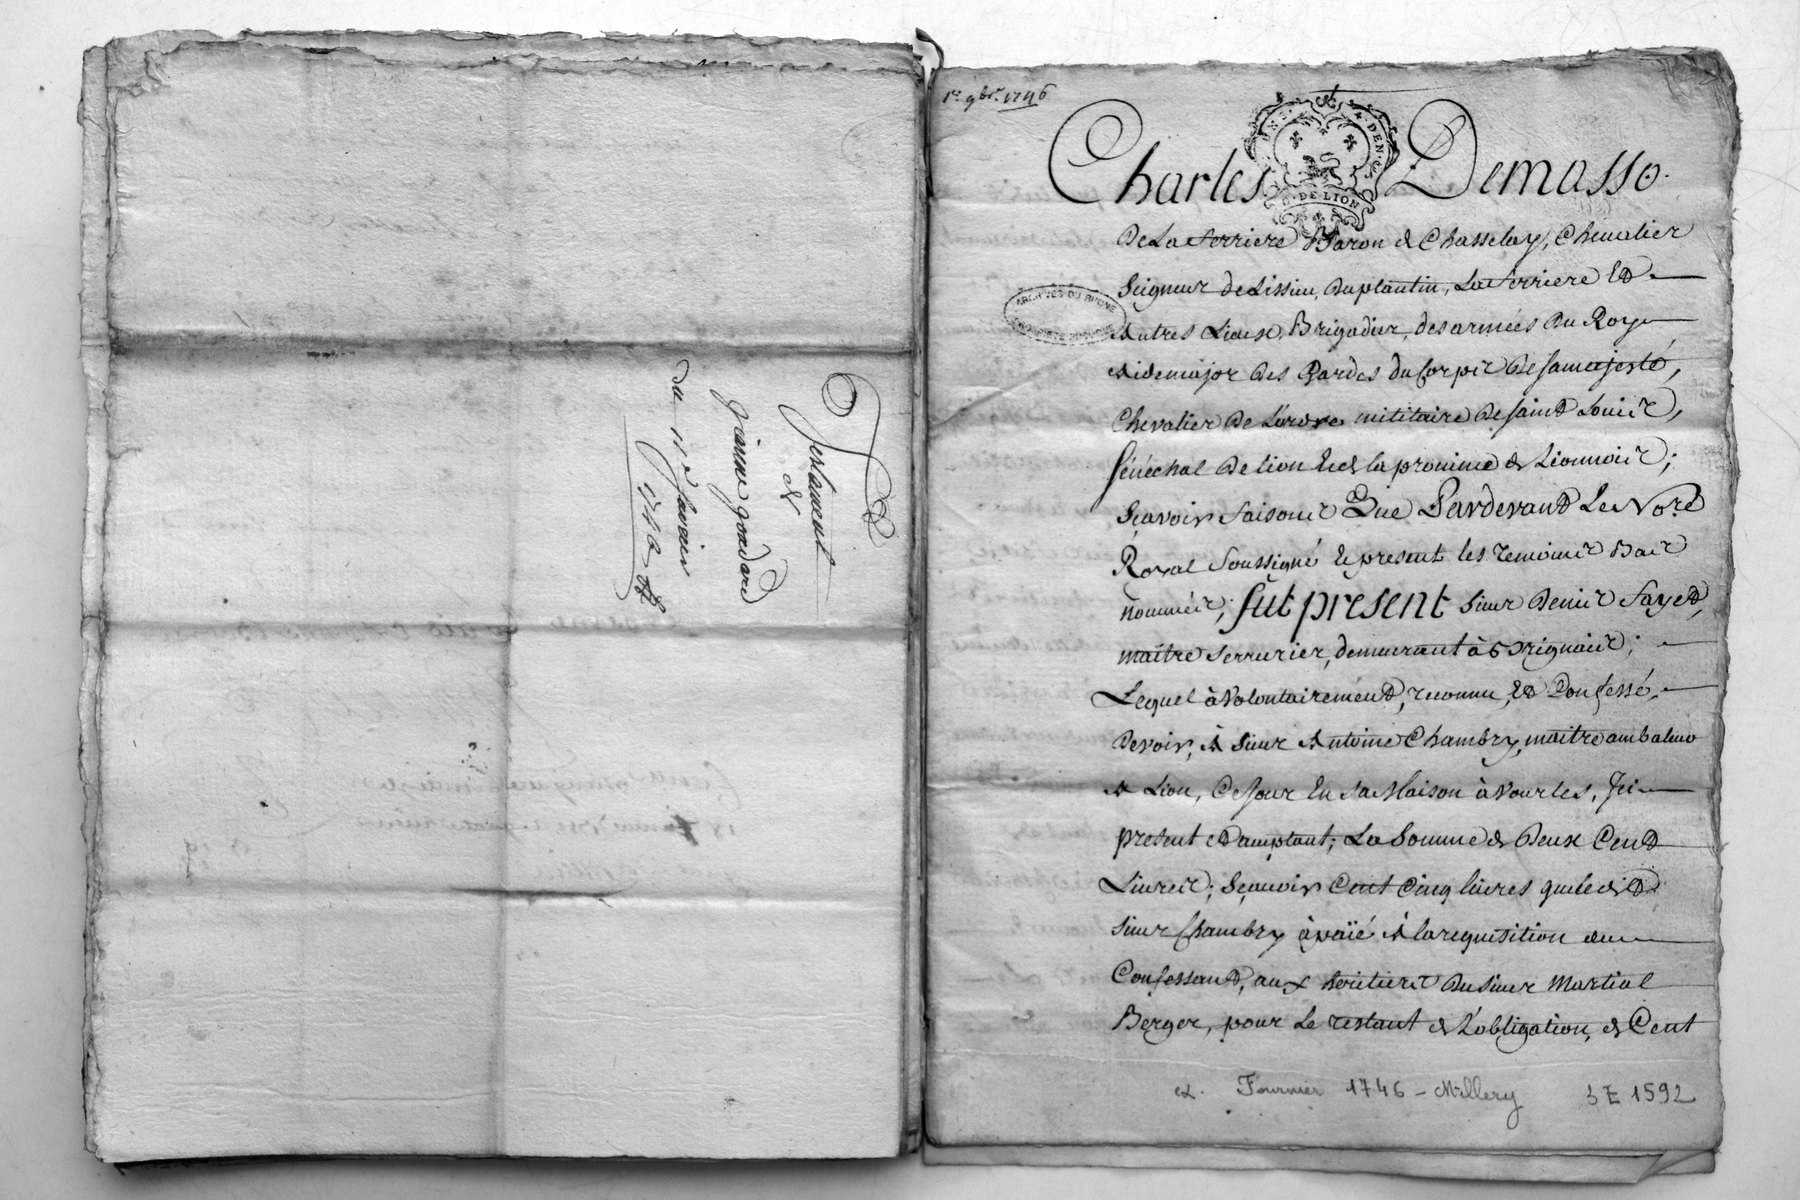 Testament
de
jeanne gondard
du 11e fevrier
1746
1er 9bre 1746
Charles Demasso.
GEN. DE LION
De La ferriere Baron de Chasselay, Chevalier
Seigneur de Lissieu, Duplantin, La ferriere Et
Autres Lieux, Brigadier, des armées Du Roy
Aidemajor Des Gardes du Corps De samajesté,
Chevalier De L'ordre militaire De saint Louis,
sénéchal De lion Et de la province de Lionnois;
Sçavoir faisons Que Pardevant Le Nore
Royal soussigné Et present les temoins Bas
nommés; fut present sieur Denis fayet,
maître serrurier, demeurant à Brignais;
Lequel à volontairement, reconnu, Et Confessé,
Devoir, A sieur Antoine Chambry, maitre ambaleur
A Lion, Ce jour En sa Maison à Vourles, Ici
present Et acceptant; La Somme de Deux Cent
Livres; Sçavoir Cent Cinq livres que ledit
sieur Chambry à païé A la requisition du
Confessant, aux heritiers Du sieur Martial
Berger, pour Le restant de L'obligation, de Cent
ARCHIVES DU RHONE
ex. Fournier 1746 - Millery 3 E 1592